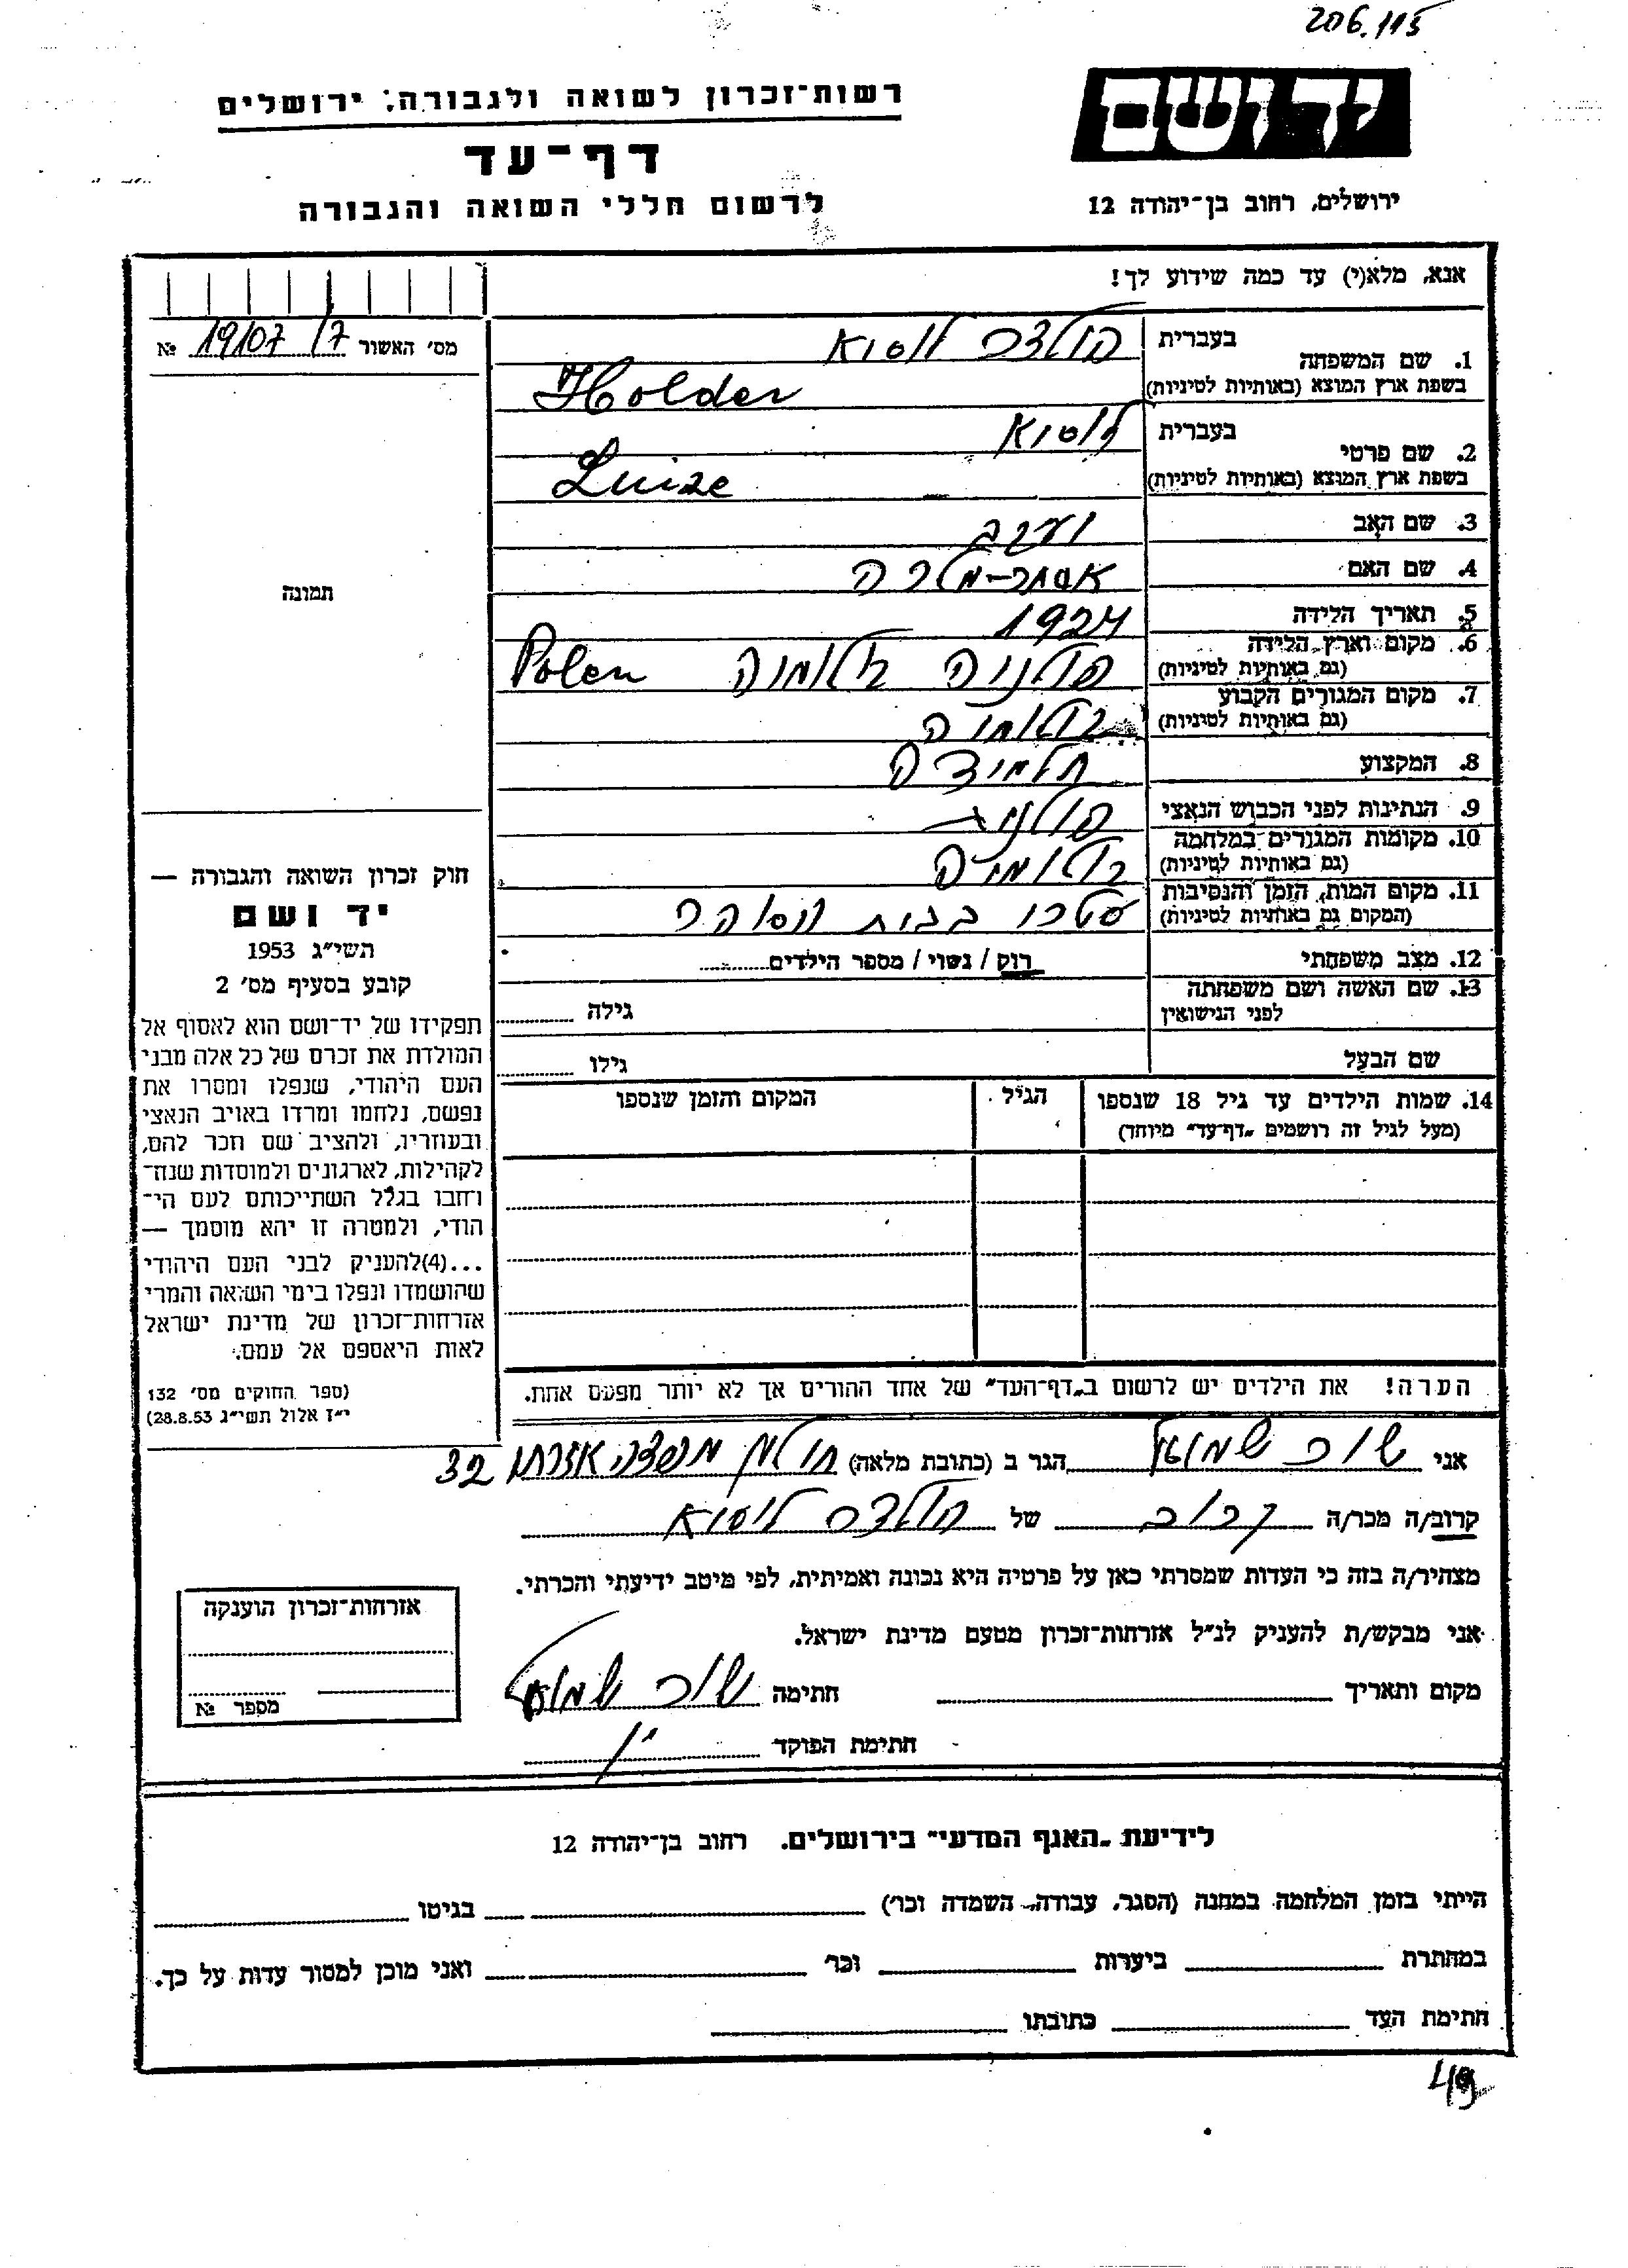 206.115
רשות־זכרון לשואה ולגבורה, ירושלים
דף־עד
לרשום חללי השואה והגבורה
יד ושם
ירושלים, רחוב בן־יהודה 12
אנא, מלא(י) עד כמה שידוע לך!
מס׳ האשור 19107/7 №
תמונה
1. שם המשפחה
בעברית הולדר לוסיא
בשפת ארץ המוצא (באותיות לטיניות) Holder
2. שם פרטי
בעברית לוסיא
בשפת ארץ המוצא (באותיות לטיניות) Luize
3. שם האב יעקב
4. שם האם אסתר-מלכה
5. תאריך הלידה 1924
6. מקום וארץ הלידה
(גם באותיות לטיניות) פולניה Polen
7. מקום המגורים הקבוע
(גם באותיות לטיניות)
8. המקצוע תלמידה
9. הנתינות לפני הכבוש הנאצי פולנית
10. מקומות המגורים במלחמה
(גם באותיות לטיניות)
11. מקום המות, הזמן והנסיבות
(המקום גם באותיות לטיניות) בבית הסוהר
12. מצב משפחתי רוק / נשוי / מספר הילדים
13. שם האשה ושם משפחתה
לפני הנישואין גילה
שם הבעל גילו
14. שמות הילדים עד גיל 18 שנספו
(מעל לגיל זה רושמים „דף־עד״ מיוחד)
הגיל
המקום והזמן שנספו
חוק זכרון השואה והגבורה —
יד ושם
תשי״ג 1953
קובע בסעיף מס׳ 2
תפקידו של יד־ושם הוא לאסוף אל
המולדת את זכרם של כל אלה מבני
העם היהודי, שנפלו ומסרו את
נפשם, נלחמו ומרדו באויב הנאצי
ובעוזריו, ולהציב שם וזכר להם,
לקהילות, לארגונים ולמוסדות שנח־
רחבו בגלל השתייכותם לעם הי־
הודי, ולמטרה זו יהא מוסמך —
...(4)להעניק לבני העם היהודי
שהושמדו ונפלו בימי השואה והמרי
אזרחות־זכרון של מדינת ישראל
לאות היאספם אל עמם.
(ספר החוקים מס׳ 132
י״ז אלול תשי״ג 28.8.53)
הערה! את הילדים יש לרשום ב„דף־העד״ של אחד ההורים אך לא יותר מפעם אחת.
אני שור שמואל הגר ב (כתובת מלאה) חולון 32
קרוב/ה מכר/ה קרוב של הולדר לוסיא
מצהיר/ה בזה כי העדות שמסרתי כאן על פרטיה היא נכונה ואמיתית, לפי מיטב ידיעתי והכרתי.
אני מבקש/ת להעניק לנ״ל אזרחות־זכרון מטעם מדינת ישראל.
מקום ותאריך חתימה שור שמואל
חתימת הפוקד
אזרחות־זכרון הוענקה
מספר №
לידיעת „האגף המדעי״ בירושלים. רחוב בן־יהודה 12
הייתי בזמן המלחמה במחנה (הסגר, עבודה, השמדה וכו׳) בגיטו
במחתרת ביערות וכו׳ ואני מוכן למסור עדות על כך.
חתימת העד כתובתו
49